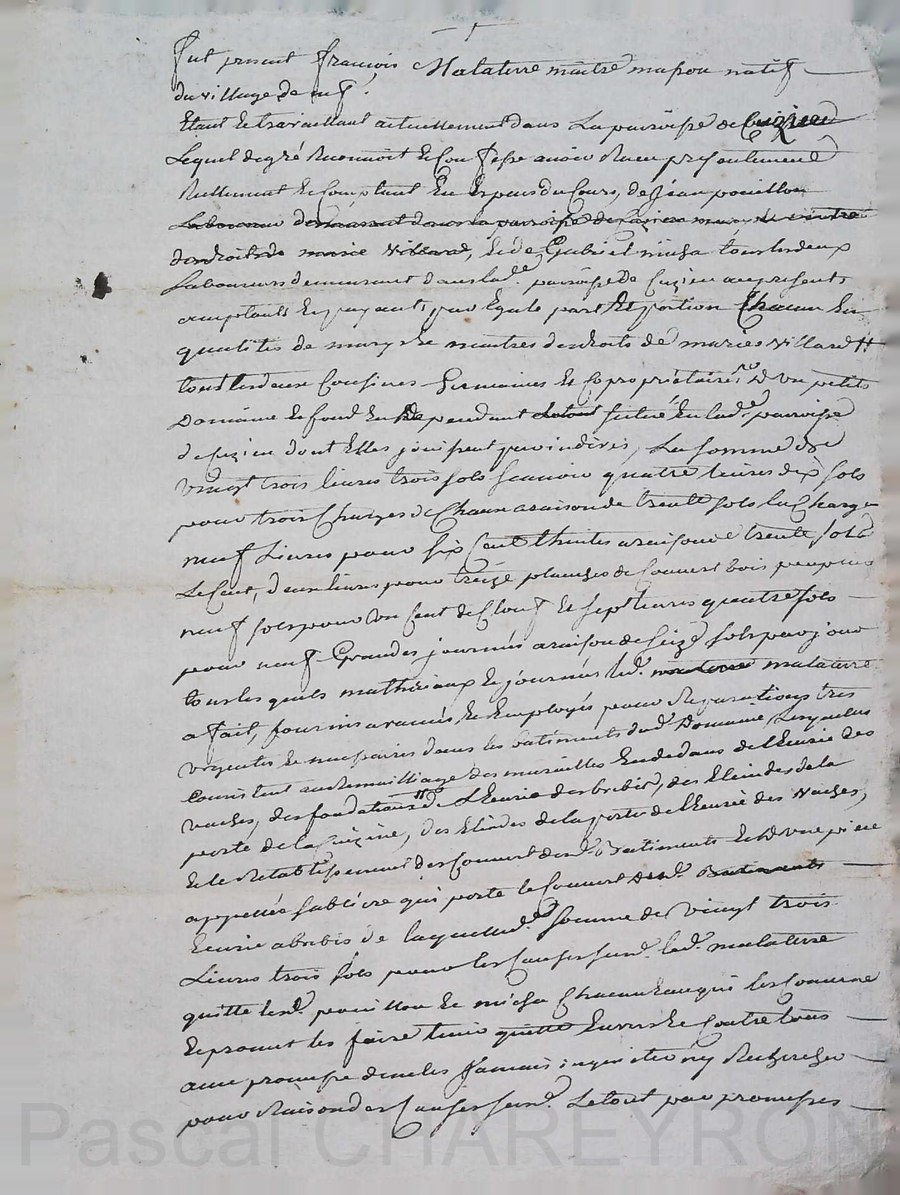 Fut present françois Malaterre maitre masson natif
du village de
Etant Et travaillant actuellement dans La paroisse de Cuzieu
Lequel de gré Reconnoit Et Confesse avoir Recu presentement
Reellement Et Comptant En Especes du Cours, de Jean pouillon
Laboureur demeurant dans la paroisse de Cuzieu mary Et maitre
des droits de marie Villard, Et de Gabriel micha tous les deux
Laboureurs demeurant dans lad.e paroisse De Cuzieu icy presents
acceptants Et payants par Egale part Et portion Chacun En
qualités de marys Et maitres des droits de maries Villard
tous les deux Cousines Germaines Et Copropriétaires D'un petit
Domaine Et fond En Dependant situé En lad.e paroisse
de Cuzieu dont Elles jouissent par indivis, La somme de
Vingt trois livres trois sols scavoir quatre livres dix sols
pour trois Charges de Chaux a raison de trente sols la Charge
neuf Livres pour six Cent thuiles a raison de trente sols
Le Cent, deux livres pour treize planches de Couvert bois peuplier
neuf sols pour un Cent de Clouf Et sept livres quatre sols
pour neuf Grandes journées a raison de seize sols par jour
tous les quels matheriaux Et journées led. malaterre
a fait, fournis Et Employés pour Reparations tres
urgentes Et necessaires dans les batiments dud. Domaine, Lesquelles
Consistent au Remailliage des murailles En dedans de l'Ecurie des
vaches, des fondations de L'Ecurie des brebis, des Elindes de la
porte de la Cuizine, des Elindes de la porte de l'Ecurie des Vaches,
Et le Retablissement des Couvert desd. Batiments Et D'une piece
appellée sabliere qui porte le Couvert
Ecurie a brebis de laquelle d.e somme de Vingt trois
Livres trois sols pour les Causes susd. led. malaterre
quitte lesd. pouillon Et micha Chacun En ce qui les Concerne
Et promet les faire tenir quitte Envers Et Contre tous
avec promesse de ne les Jamais inquietter ny Rechercher
pour Raison des Causes susd. Le tout par promesses
Pascal CHAREYRON